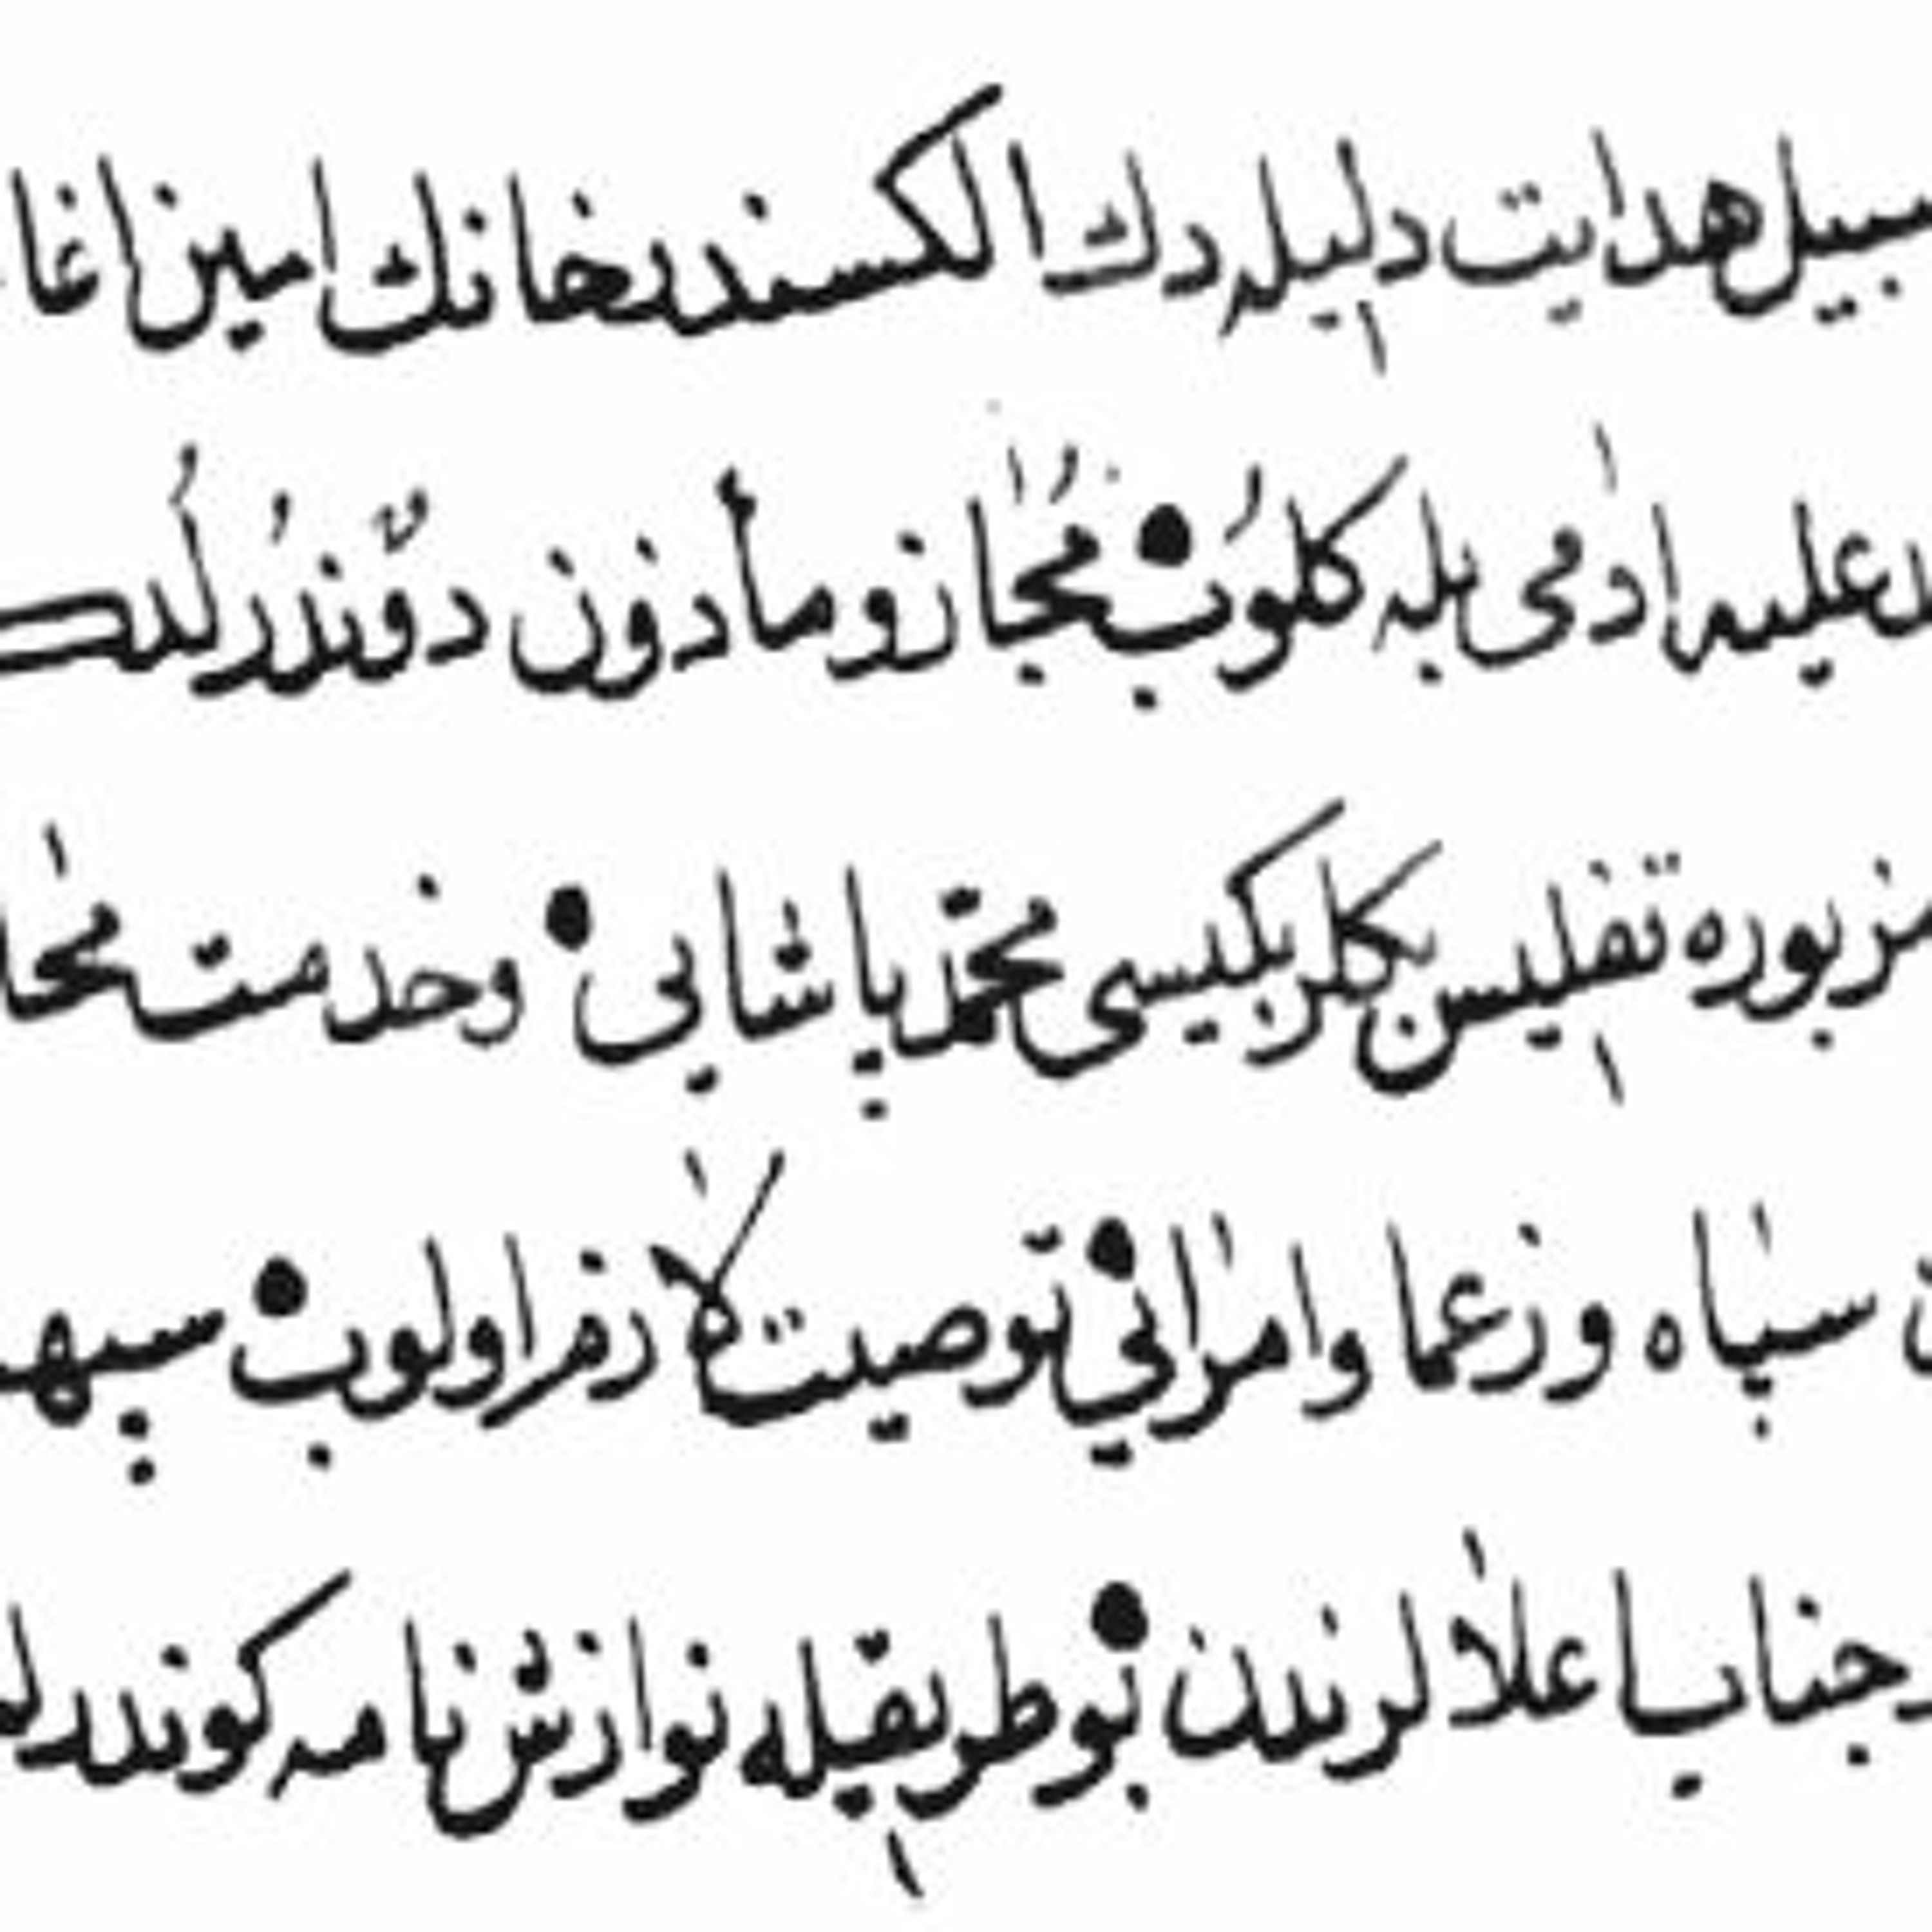 سبیل هدایت دلیلدرك الكسندرخانك امین اغا
علیه ادمی یله كلوب مجاز و مأذون دونذرلدك
مزبوره تفلیس بكلربكیسی محمد پاشایی وخدمت محا
سپاه وزعما وامرایی توصیت كلا ذمر اولوب سپه
جناب اعلالرندن بو طریقیله نوازش نامه كوندرل